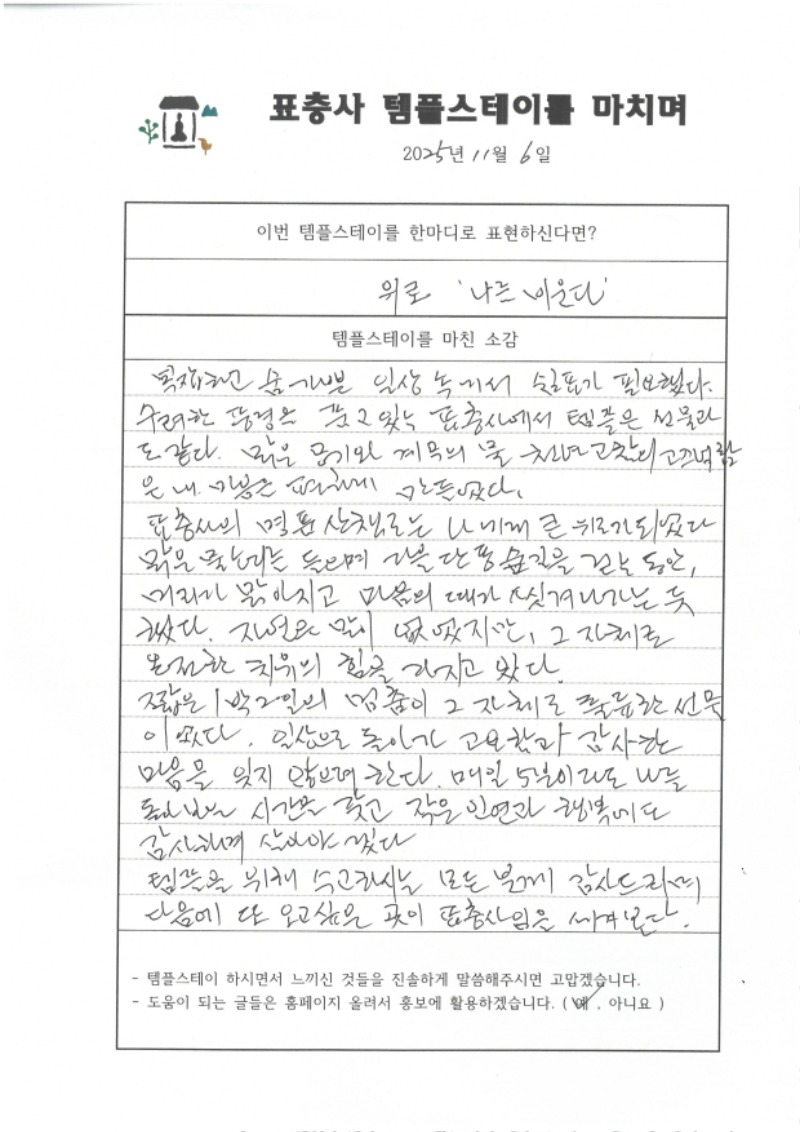 표충사 템플스테이를 마치며
2025년 11월 6일
이번 템플스테이를 한마디로 표현하신다면?
위로 '나를 비운다'
템플스테이를 마친 소감
복잡하고 숨가쁜 일상 속에서 쉼표가 필요했다.
수려한 풍경을 품고 있는 표충사에서 템플은 선물과
도 같다. 맑은 공기와 계곡의 물 천년고찰의 고즈넉함
은 내 마음을 편하게 만들었다.
표충사의 명품 산책로는 나에게 큰 위로가 되었다
맑은 물소리를 들으며 가을 단풍 숲길을 걷는 동안,
머리가 맑아지고 마음의 때가 씻겨나가는 듯
했다. 자연은 말이 없었지만, 그 자체로
온전한 치유의 힘을 가지고 있었다.
짧은 1박2일의 멈춤이 그 자체로 훌륭한 선물
이었다. 일상으로 돌아가 고요함과 감사한
마음을 잊지 않으려 한다. 매일 5분이라도 나를
돌아보는 시간을 갖고 작은 인연과 행복에도
감사하며 살아야겠다
템플을 위해 수고하시는 모든 분께 감사드리며
다음에 또 오고싶은 곳이 표충사임을 새겨본다.
- 템플스테이 하시면서 느끼신 것들을 진솔하게 말씀해주시면 고맙겠습니다.
- 도움이 되는 글들은 홈페이지 올려서 홍보에 활용하겠습니다. ( 예 , 아니요 )